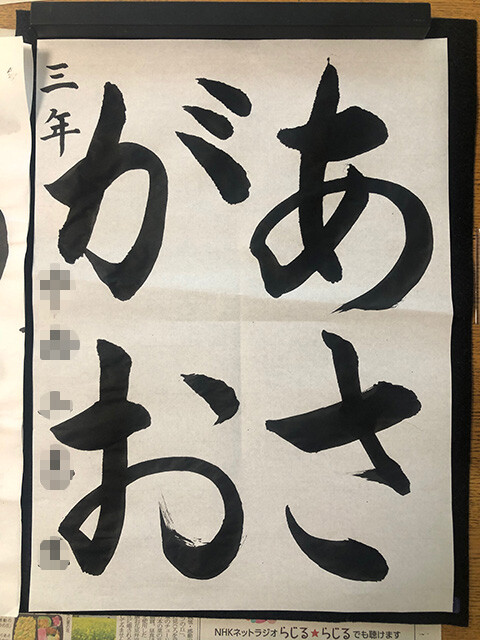 あさ
がお
三年
NHKネットラジオ らじる★らじる でも聴けます